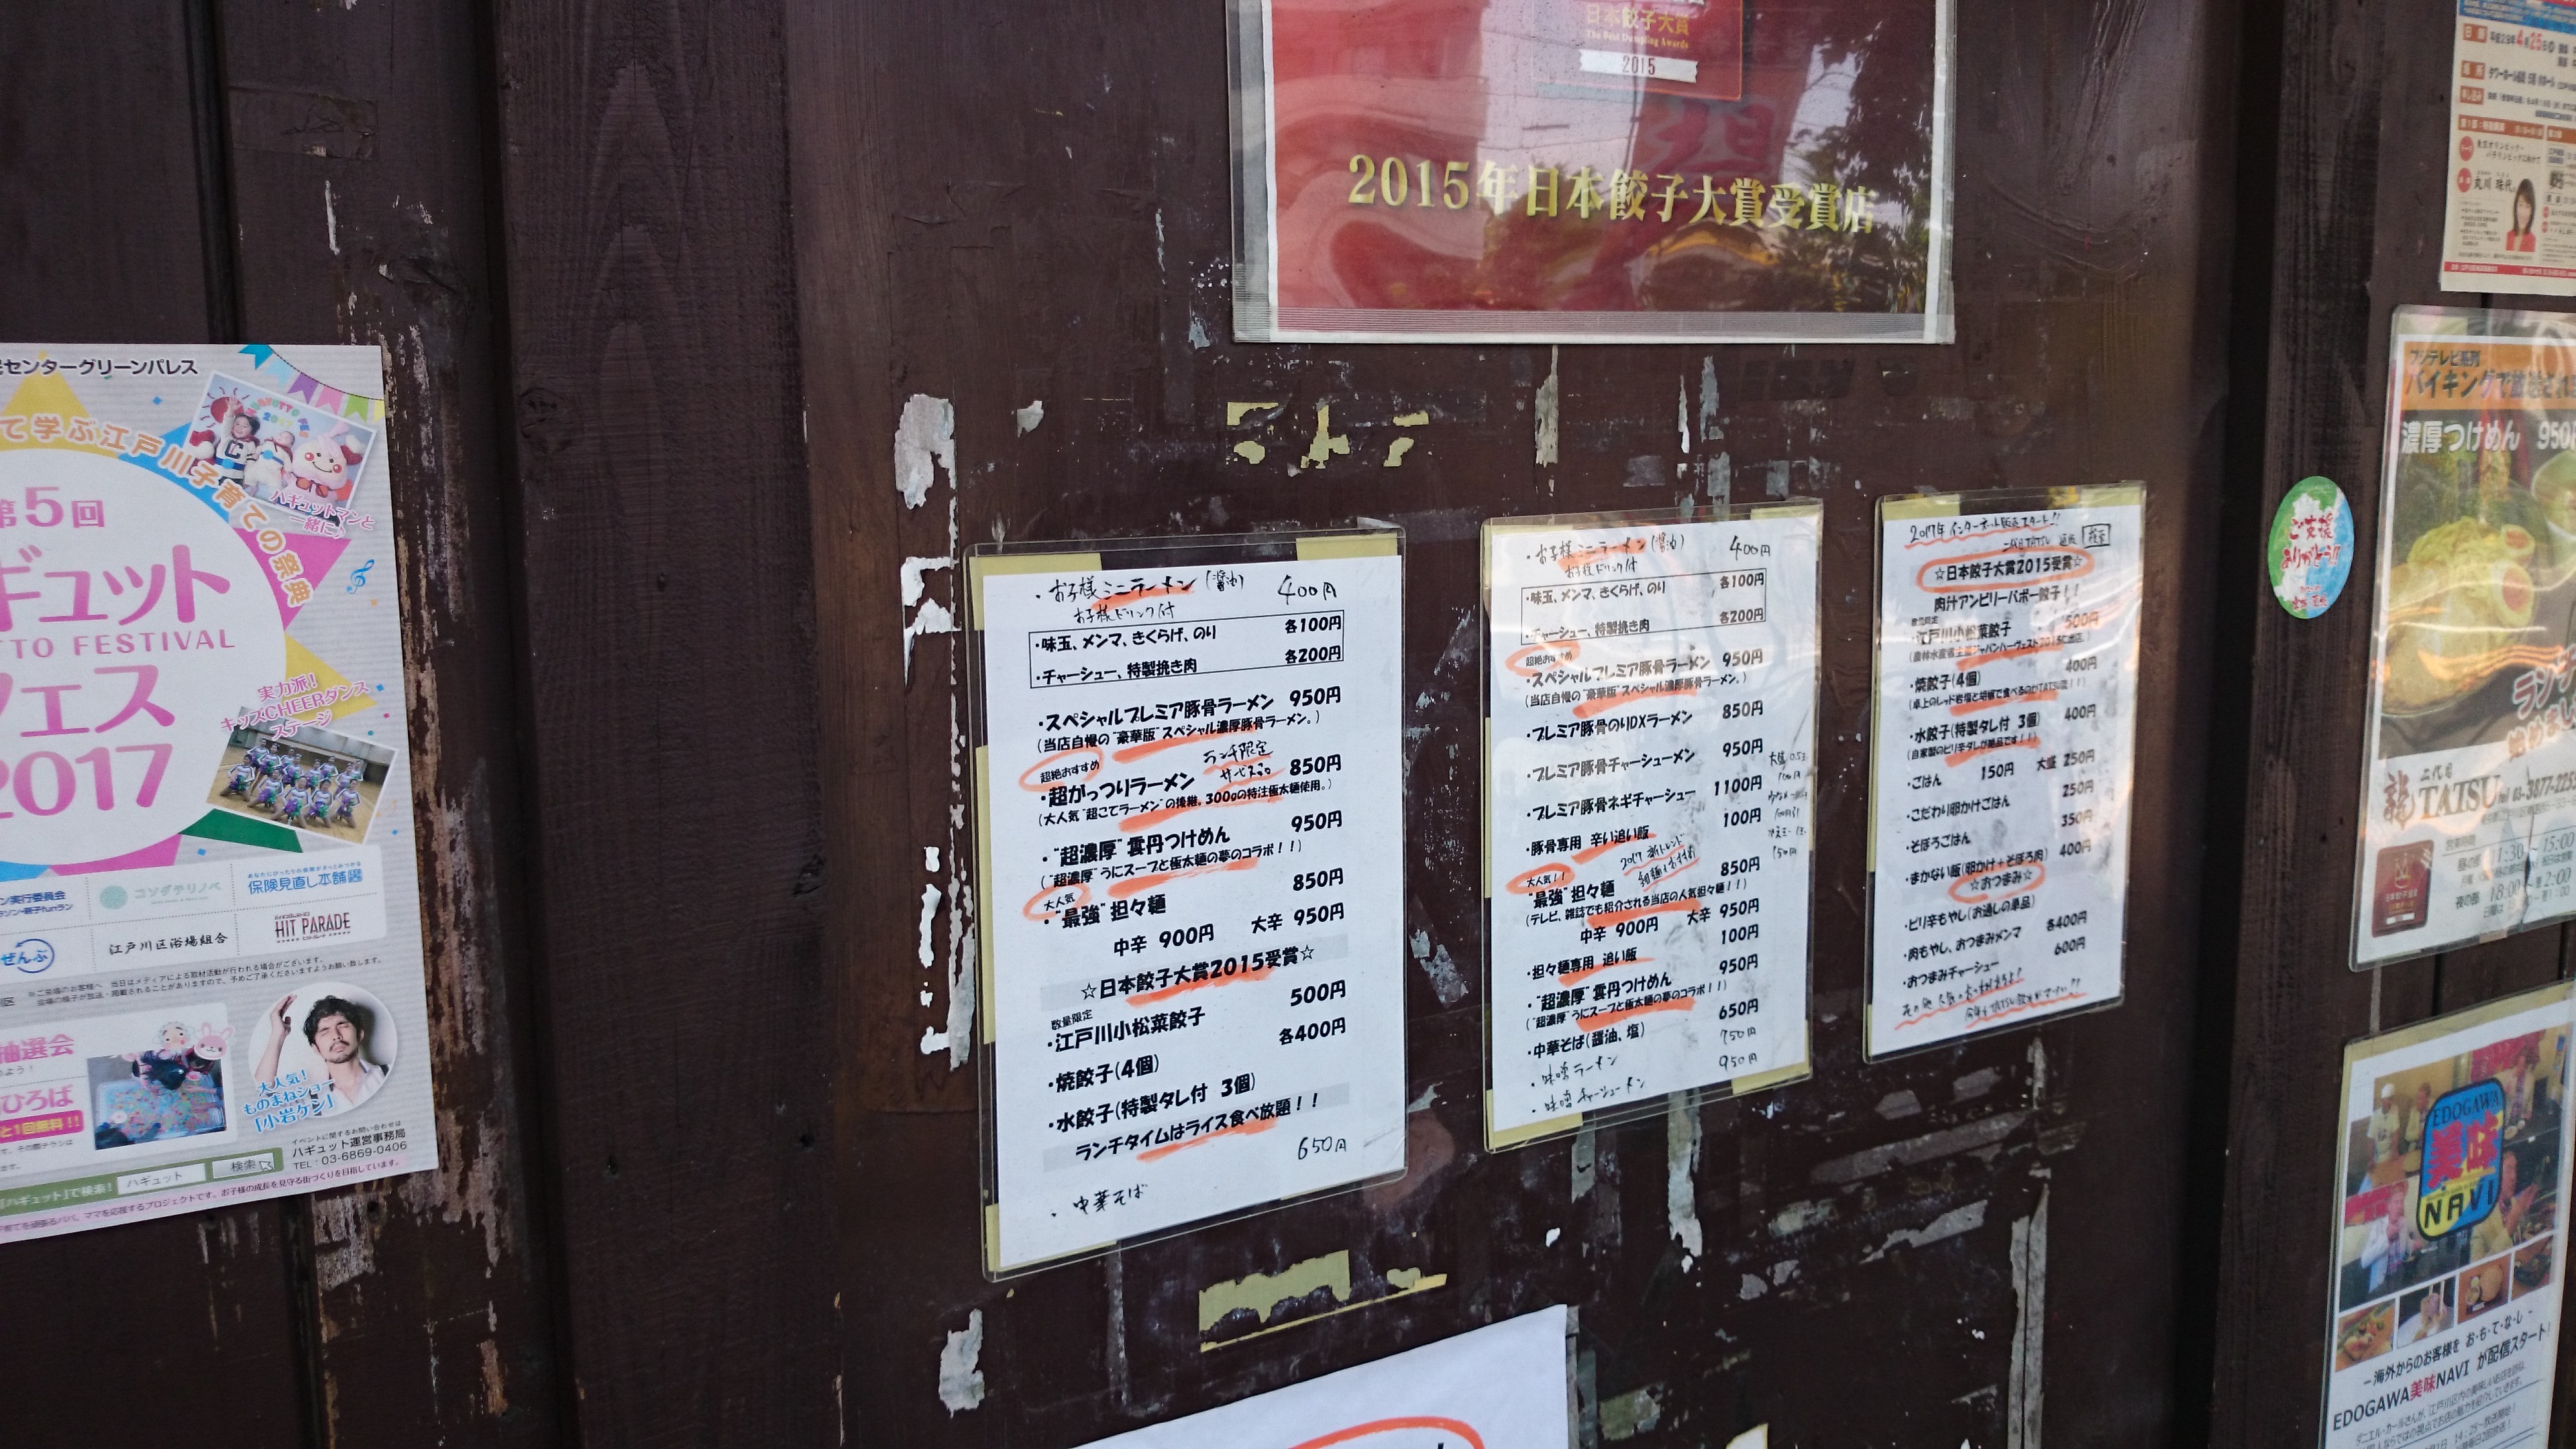 センターグリーンパレス
て学ぶ江戸川子育ての祭典
ハギュットマンと
一緒に♪
第5回
ギュット
TTO FESTIVAL
フェス
2017
実力派！
キッズCHEERダンス
ステージ
ン実行委員会
コソダテリノベ
保険見直し本舗
ぜんぶ
江戸川区浴場組合
HIT PARADE
抽選会
ひろば
と1回無料!!
大人気！
ものまねショー
「小岩ケン」
イベントに関するお問い合わせは
ハギュット運営事務局
TEL：03-6869-0406
「ハギュット」で検索！ ハギュット 検索
日本餃子大賞
The Best Dumpling Awards
2015
2015年日本餃子大賞受賞店
・お子様ミニラーメン(醤油) 400円
お子様ドリンク付
・味玉、メンマ、きくらげ、のり 各100円
・チャーシュー、特製挽き肉 各200円
・スペシャルプレミア豚骨ラーメン 950円
(当店自慢の"豪華版"スペシャル濃厚豚骨ラーメン。)
超絶おすすめ ランチ限定
サービス品
・超がっつりラーメン 850円
(大人気"超こてラーメン"の後継。300gの特注極太麺使用。)
・"超濃厚"雲丹つけめん 950円
("超濃厚"うにスープと極太麺の夢のコラボ！！)
大人気
・"最強"担々麺 850円
中辛 900円 大辛 950円
☆日本餃子大賞2015受賞☆
数量限定
・江戸川小松菜餃子 500円
・焼餃子(4個) 各400円
・水餃子(特製タレ付 3個)
ランチタイムはライス食べ放題！！
・中華そば 650円
・お子様ミニラーメン(醤油) 400円
お子様ドリンク付
・味玉、メンマ、きくらげ、のり 各100円
・チャーシュー、特製挽き肉 各200円
超絶おすすめ
・スペシャルプレミア豚骨ラーメン 950円
(当店自慢の"豪華版"スペシャル濃厚豚骨ラーメン。)
・プレミア豚骨のりDXラーメン 850円
・プレミア豚骨チャーシューメン 950円
・プレミア豚骨ネギチャーシュー 1100円
・豚骨専用 辛い追い飯 100円
2017 新トレンド
大人気！！
・"最強"担々麺 850円
(テレビ、雑誌でも紹介される当店の人気担々麺！！)
中辛 900円 大辛 950円
・担々麺専用 追い飯 100円
・"超濃厚"雲丹つけめん 950円
("超濃厚"うにスープと極太麺の夢のコラボ！！)
・中華そば(醤油、塩) 650円
・味噌ラーメン 750円
・味噌チャーシューメン 950円
2017年インターネット販売スタート!!
二代目TATSU 通販 検索
☆日本餃子大賞2015受賞☆
肉汁アンビリーバボー餃子！！
数量限定
・江戸川小松菜餃子 500円
・焼餃子(4個) 400円
・水餃子(特製タレ付 3個) 400円
(自家製のピリ辛ダレが絶品です！！)
・ごはん 150円 大盛 250円
・こだわり卵かけごはん 250円
・そぼろごはん 350円
・まかない飯(卵かけ＋そぼろ肉) 400円
☆おつまみ☆
・ピリ辛もやし(お通しの単品)
・肉もやし、おつまみメンマ 各400円
・おつまみチャーシュー 600円
ご支援
ありがとう!!
4月25日
丸川 珠代
フジテレビ系列
バイキングで放送され
濃厚つけめん 950円
ランチ
始めまし
二代目
龍 TATSU Tel 03-3877-225
11:30 15:00
18:00 2:00
EDOGAWA
美味
NAVI
－海外からのお客様を お・も・て・な・し－
EDOGAWA美味NAVI が配信スタート！